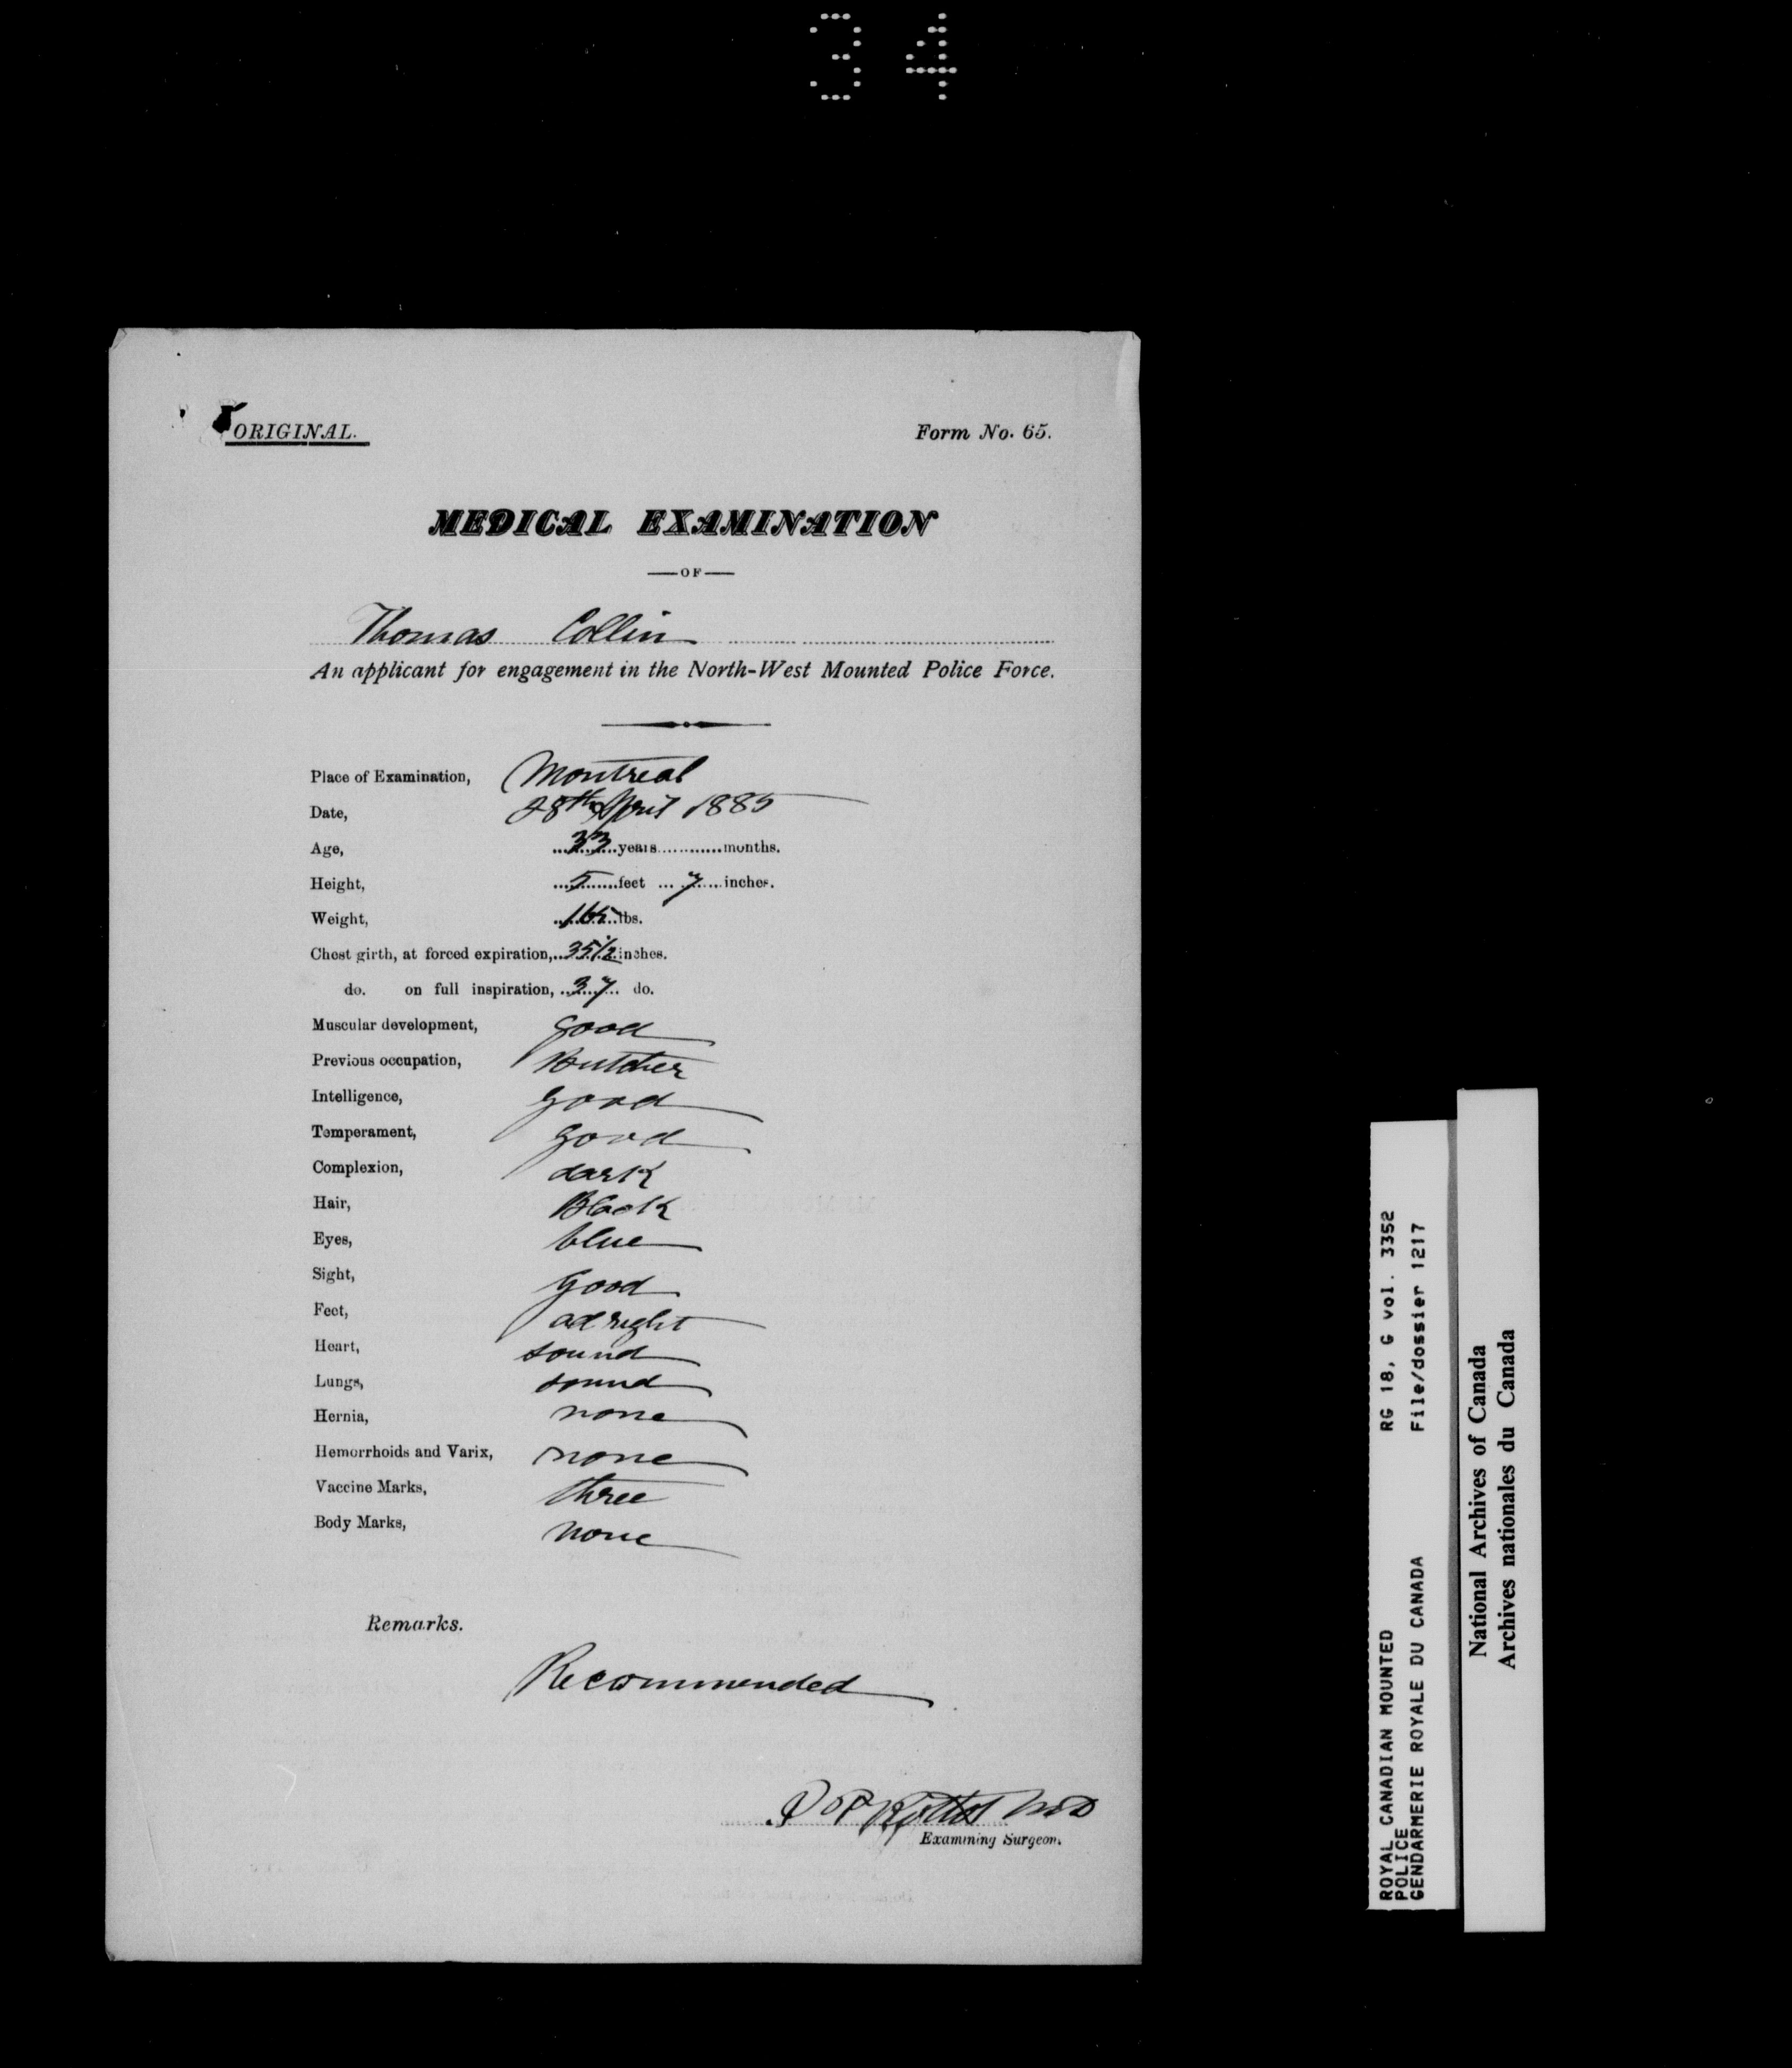 34
ORIGINAL.
Form No. 65.
MEDICAL EXAMINATION
—OF—
Thomas Collin
An applicant for engagement in the North-West Mounted Police Force.
Place of Examination, Montreal
Date, 28th April 1885
Age, 33 years months.
Height, 5 feet 7 inches.
Weight, 165 lbs.
Chest girth, at forced expiration, 35 1/2 inches.
do. on full inspiration, 37 do.
Muscular development, good
Previous occupation, Butcher
Intelligence, good
Temperament, good
Complexion, dark
Hair, Black
Eyes, blue
Sight, good
Feet, all right
Heart, sound
Lungs, sound
Hernia, none
Hemorrhoids and Varix, none
Vaccine Marks, three
Body Marks, none
Remarks.
Recommended
MD
Examining Surgeon.
ROYAL CANADIAN MOUNTED RG 18, G vol. 3352
POLICE
GENDARMERIE ROYALE DU CANADA File/dossier 1217
National Archives of Canada
Archives nationales du Canada